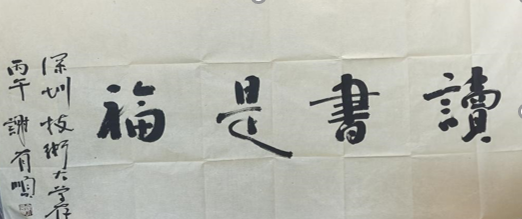 讀書是福
深圳技術大學存
丙午 謝有順